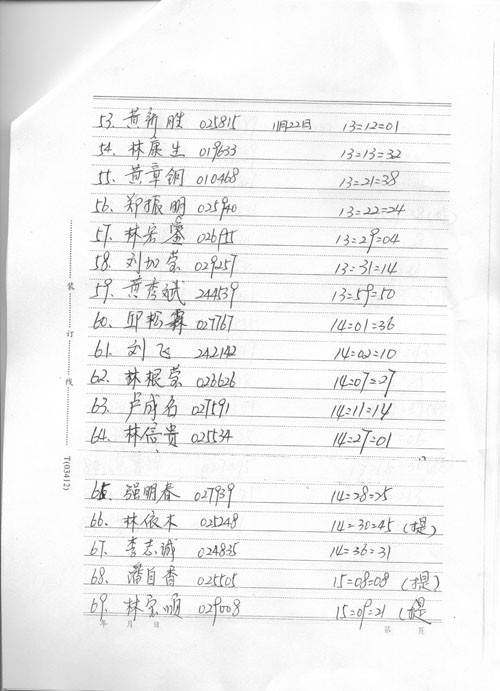 53、黄新胜 025815 11月22日 13=12=01
54、林康生 019633 13=13=32
55、黄章铜 010468 13=21=38
56、郑振明 025940 13=22=24
57、林宏 026955 13=29=04
58、刘加荣 029257 13=31=14
59、黄秀斌 244539 13=59=50
60、邱松霖 027767 14=01=36
61、刘飞 242142 14=02=10
62、林根荣 026626 14=07=27
63、卢成名 027591 14=11=14
64、林信贵 025534 14=27=01
65、强明春 027939 14=28=25
66、林依木 025248 14=30=45 (提)
67、李志诚 024835 14=36=31
68、潘自香 025505 15=08=08 (提)
69、林宗顺 029008 15=09=21 (提
年 月 日 第 页
装
订
线
T(03412)